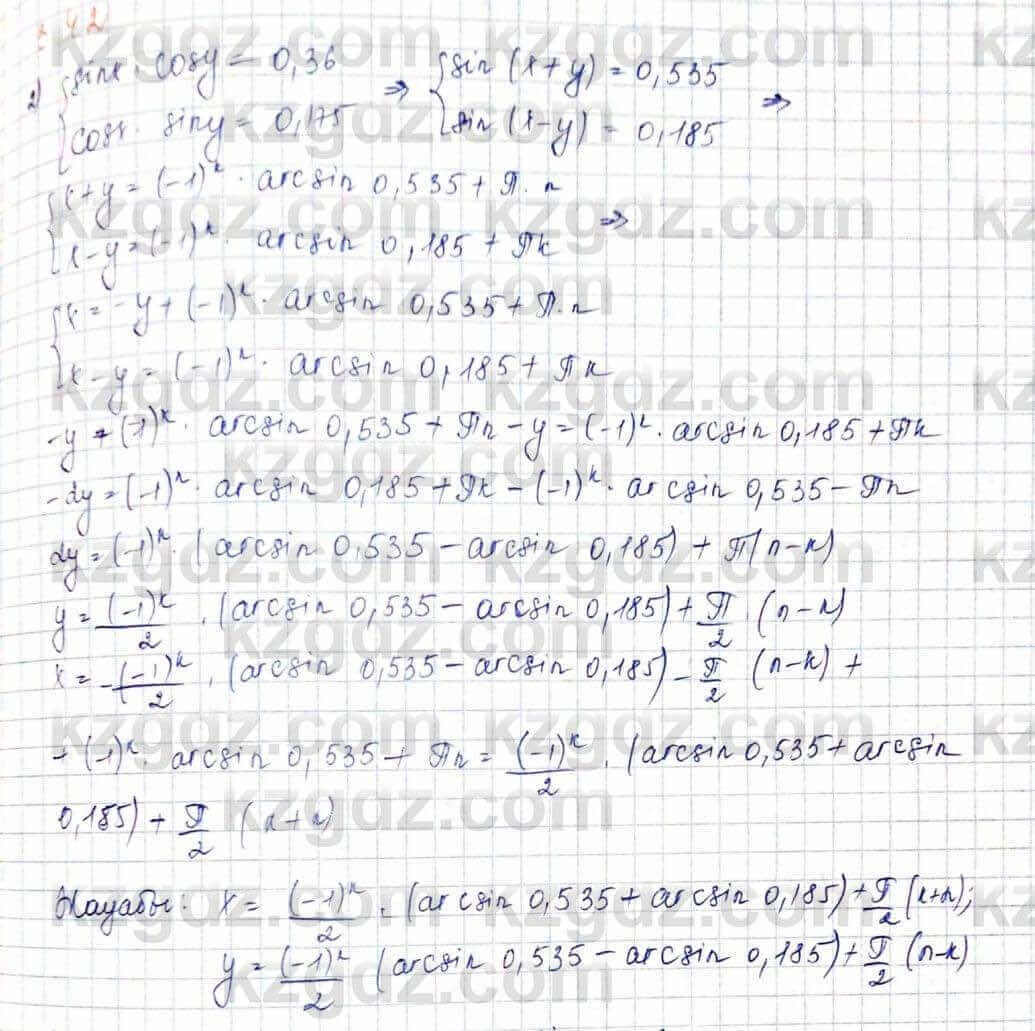 242
2) { sinx · cosy = 0,36 ⇒ { sin (x+y) = 0,535 ⇒
{ cosx · siny = 0,175 { sin (x-y) = 0,185
{ x+y = (-1)^k · arcsin 0,535 + π · n ⇒
{ x-y = (-1)^k · arcsin 0,185 + πk
{ x = -y + (-1)^k · arcsin 0,535 + π · n
{ x-y = (-1)^k · arcsin 0,185 + πk
-y + (-1)^k · arcsin 0,535 + πn - y = (-1)^k · arcsin 0,185 + πk
-2y = (-1)^k · arcsin 0,185 + πk - (-1)^k · arcsin 0,535 - πn
2y = (-1)^k · (arcsin 0,535 - arcsin 0,185) + π(n-k)
y = (-1)^k/2 · (arcsin 0,535 - arcsin 0,185) + π/2 · (n-k)
x = -(-1)^k/2 · (arcsin 0,535 - arcsin 0,185) - π/2 (n-k) +
+ (-1)^k · arcsin 0,535 + πn = (-1)^k/2 · (arcsin 0,535 + arcsin
0,185) + π/2 (k+n)
Жауабы: x = (-1)^k/2 · (arcsin 0,535 + arcsin 0,185) + π/2 (k+n);
y = (-1)^k/2 (arcsin 0,535 - arcsin 0,185) + π/2 (n-k)
kzgdz.com